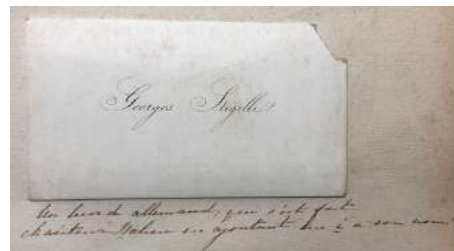 Georges Stigelli
Un lourd allemand, qui s'est fait
chanteur Italien en ajoutant un i à son nom